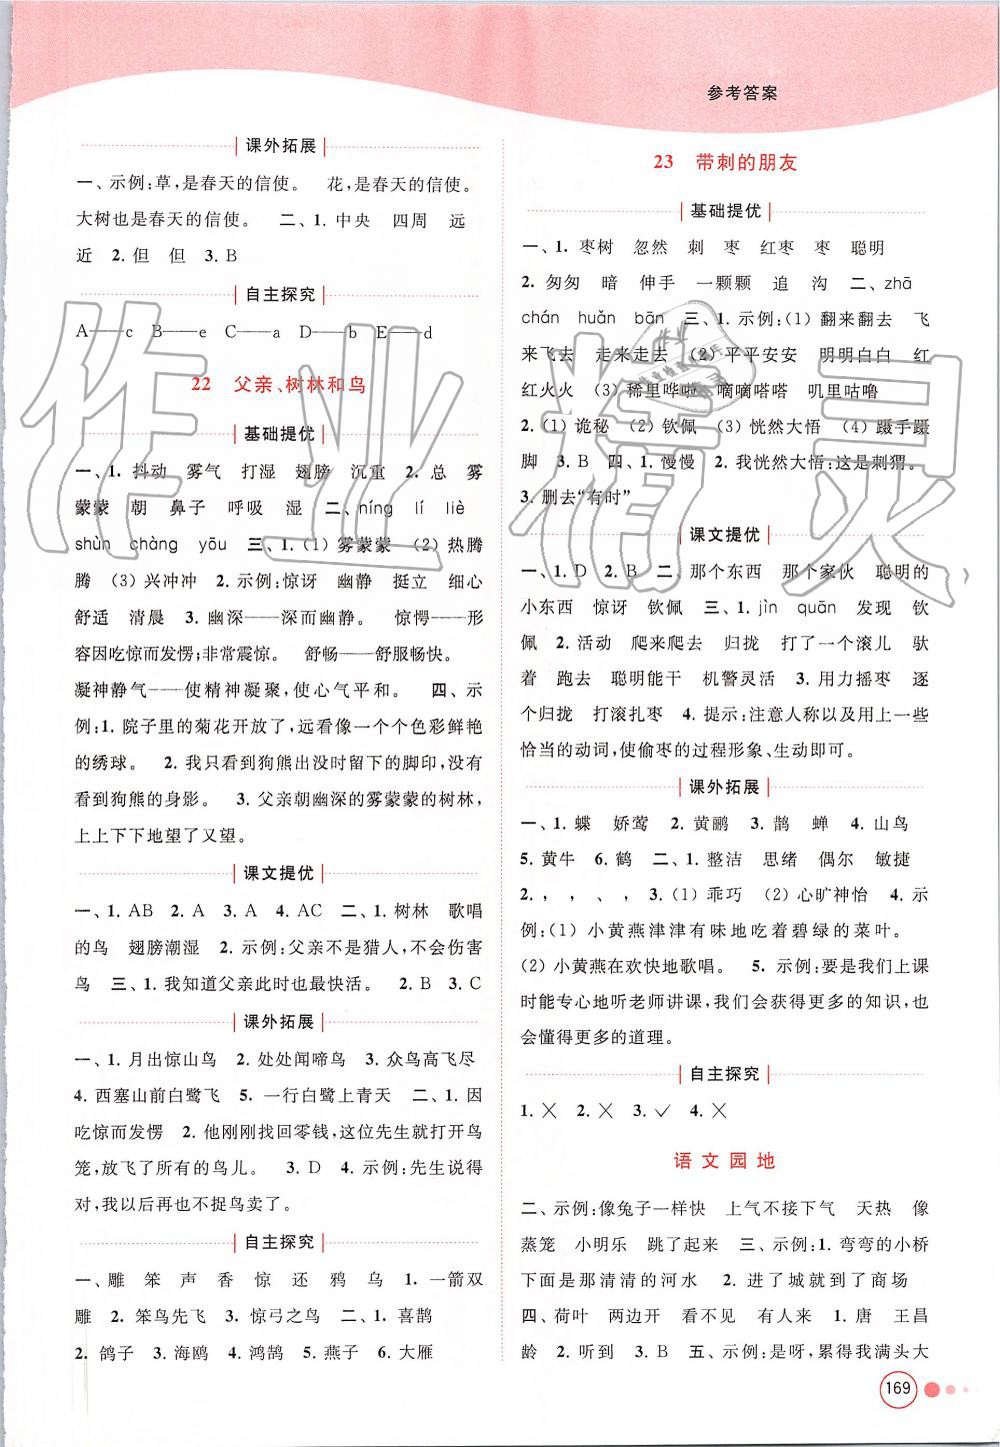 参考答案
课外拓展
一、示例:草,是春天的信使。 花,是春天的信使。
大树也是春天的信使。 二、1. 中央 四周 远
近 2. 但 但 3. B
自主探究
A——c B——e C——a D——b E——d
22 父亲、树林和鸟
基础提优
一、1. 抖动 雾气 打湿 翅膀 沉重 2. 总 雾
蒙蒙 朝 鼻子 呼吸 湿 二、níng lí liè
shùn chàng yōu 三、1. (1) 雾蒙蒙 (2) 热腾
腾 (3) 兴冲冲 2. 示例:惊讶 幽静 挺立 细心
舒适 清晨 3. 幽深——深而幽静。 惊愕——形
容因吃惊而发愣;非常震惊。 舒畅——舒服畅快。
凝神静气——使精神凝聚,使心气平和。 四、示
例:1. 院子里的菊花开放了,远看像一个个色彩鲜艳
的绣球。 2. 我只看到狗熊出没时留下的脚印,没有
看到狗熊的身影。 3. 父亲朝幽深的雾蒙蒙的树林,
上上下下地望了又望。
课文提优
一、1. AB 2. A 3. A 4. AC 二、1. 树林 歌唱
的鸟 翅膀潮湿 2. 示例:父亲不是猎人,不会伤害
鸟 三、1. 我知道父亲此时也最快活。 2. B 3. C
课外拓展
一、1. 月出惊山鸟 2. 处处闻啼鸟 3. 众鸟高飞尽
4. 西塞山前白鹭飞 5. 一行白鹭上青天 二、1. 因
吃惊而发愣 2. 他刚刚找回零钱,这位先生就打开鸟
笼,放飞了所有的鸟儿。 3. D 4. 示例:先生说得
对,我以后再也不捉鸟卖了。
自主探究
一、雕 笨 声 香 惊 还 鸦 乌 1. 一箭双
雕 2. 笨鸟先飞 3. 惊弓之鸟 二、1. 喜鹊
2. 鸽子 3. 海鸥 4. 鸿鹄 5. 燕子 6. 大雁
23 带刺的朋友
基础提优
一、1. 枣树 忽然 刺 枣 红枣 枣 聪明
2. 匆匆 暗 伸手 一颗颗 追 沟 二、zhā
chán huǎn bān 三、1. 示例:(1) 翻来翻去 飞
来飞去 走来走去 (2) 平平安安 明明白白 红
红火火 (3) 稀里哗啦 嘀嘀嗒嗒 叽里咕噜
2. (1) 诡秘 (2) 钦佩 (3) 恍然大悟 (4) 蹑手蹑
脚 3. B 四、1. 慢慢 2. 我恍然大悟:这是刺猬。
3. 删去“有时”
课文提优
一、1. D 2. B 二、那个东西 那个家伙 聪明的
小东西 惊讶 钦佩 三、1. jìn quān 发现 钦
佩 2. 活动 爬来爬去 归拢 打了一个滚儿 驮
着 跑去 聪明能干 机警灵活 3. 用力摇枣 逐
个归拢 打滚扎枣 4. 提示:注意人称以及用上一些
恰当的动词,使偷枣的过程形象、生动即可。
课外拓展
一、1. 蝶 娇莺 2. 黄鹂 3. 鹊 蝉 4. 山鸟
5. 黄牛 6. 鹤 二、1. 整洁 思绪 偶尔 敏捷
2. , , 、 , 3. (1) 乖巧 (2) 心旷神怡 4. 示
例:(1) 小黄燕津津有味地吃着碧绿的菜叶。
(2) 小黄燕在欢快地歌唱。 5. 示例:要是我们上课
时能专心地听老师讲课,我们会获得更多的知识,也
会懂得更多的道理。
自主探究
1. × 2. × 3. ✓ 4. ×
语文园地
二、示例:像兔子一样快 上气不接下气 天热 像
蒸笼 小明乐 跳了起来 三、示例:1. 弯弯的小桥
下面是那清清的河水 2. 进了城就到了商场
四、荷叶 两边开 看不见 有人来 1. 唐 王昌
龄 2. 听到 3. B 五、示例:是呀,累得我满头大
169
作业精灵